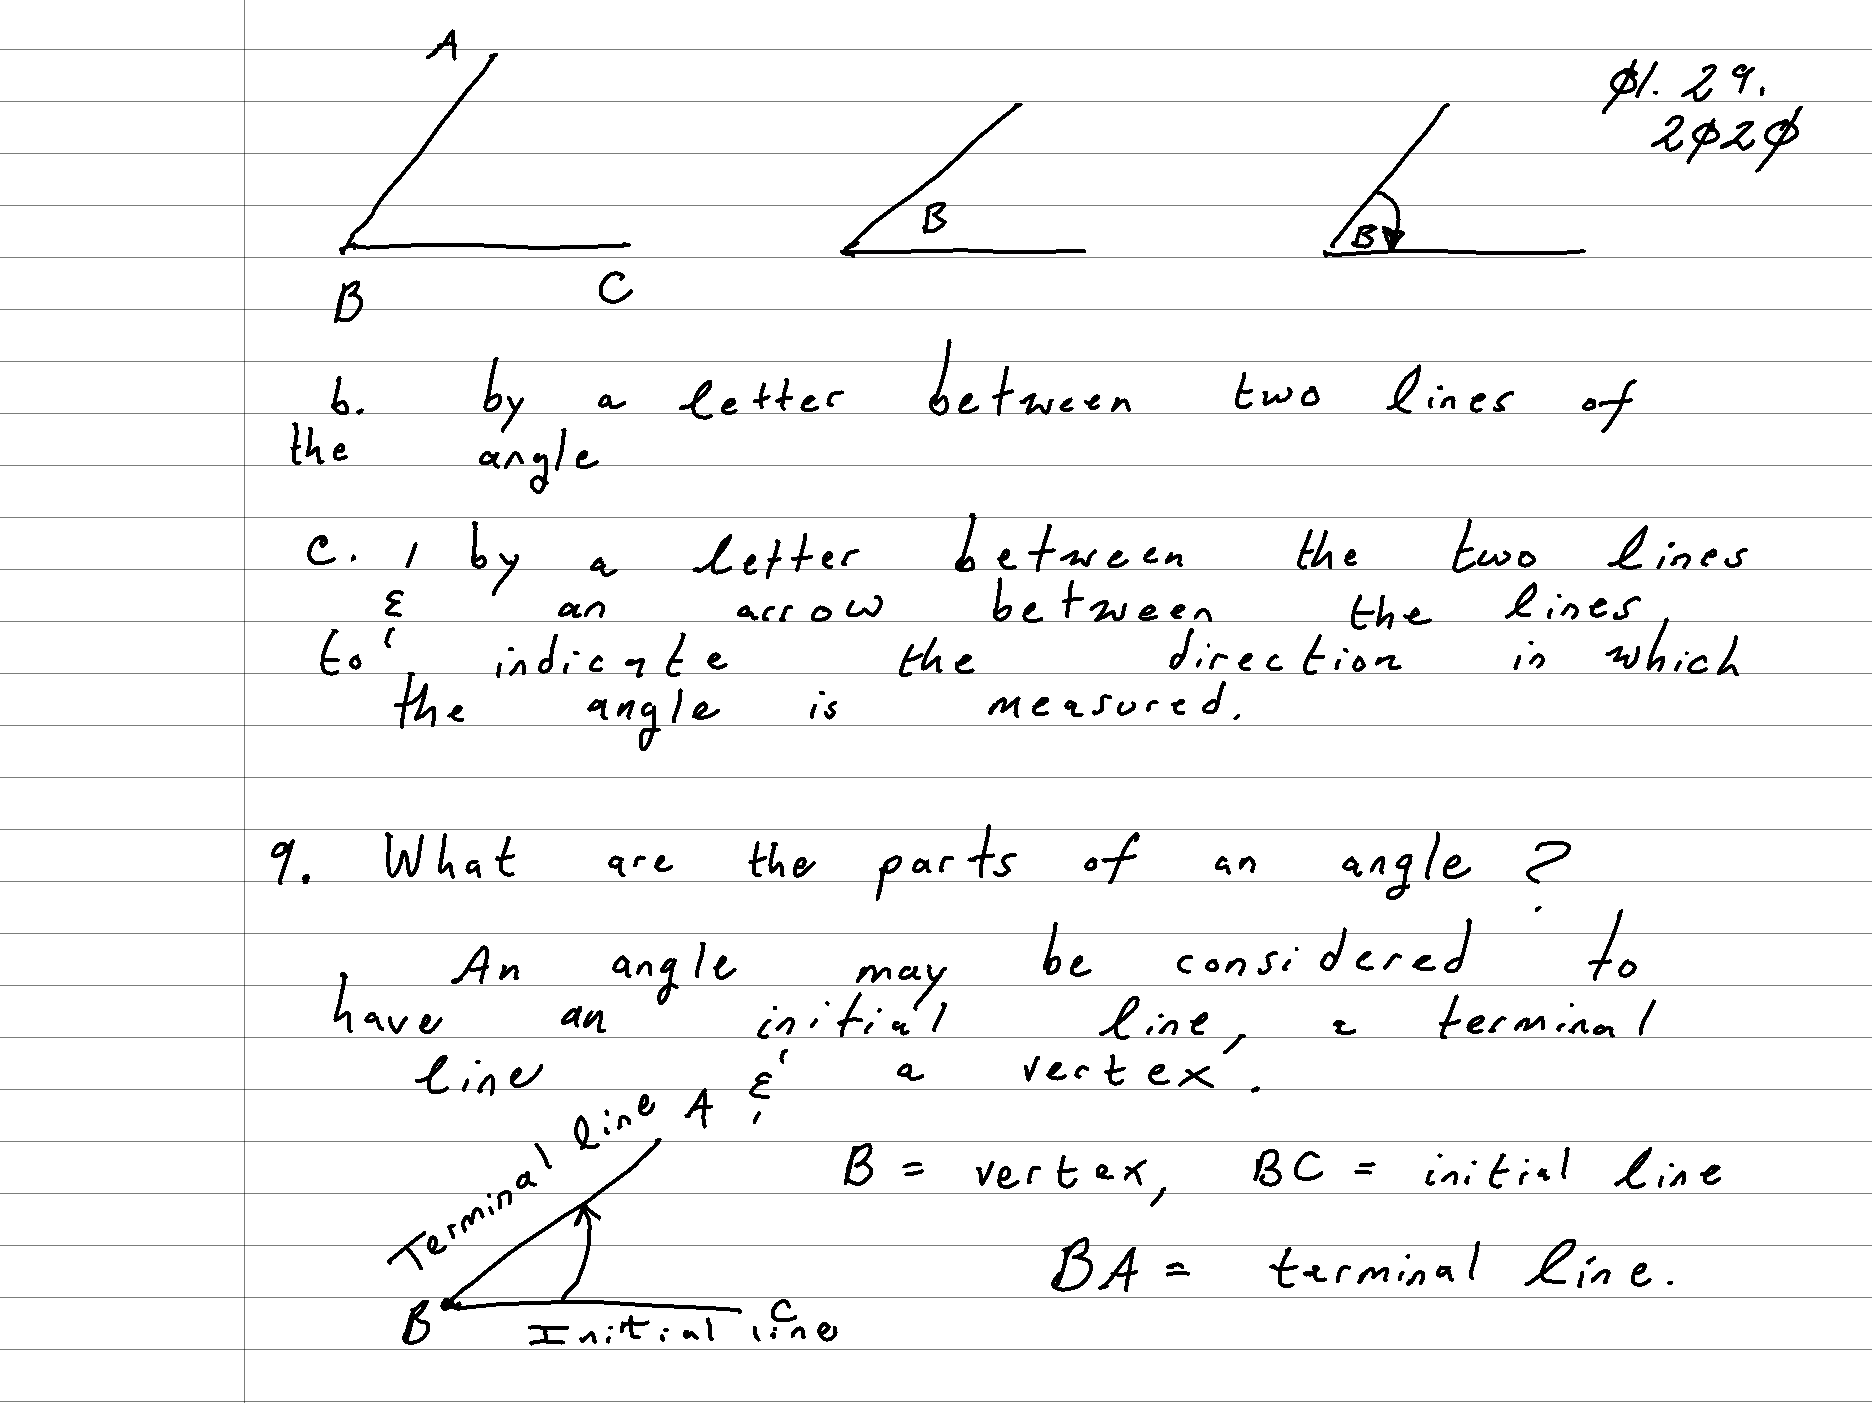 A
01. 29.
2020
B
B
B
C
b. by a letter between two lines of
the angle
c. by a letter between the two lines
& an arrow between the lines,
to indicate the direction in which
the angle is measured.
9. What are the parts of an angle?
An angle may be considered to
have an initial line, a terminal
line & a vertex.
Terminal line A
B = vertex, BC = initial line
BA = terminal line.
B C
Initial line